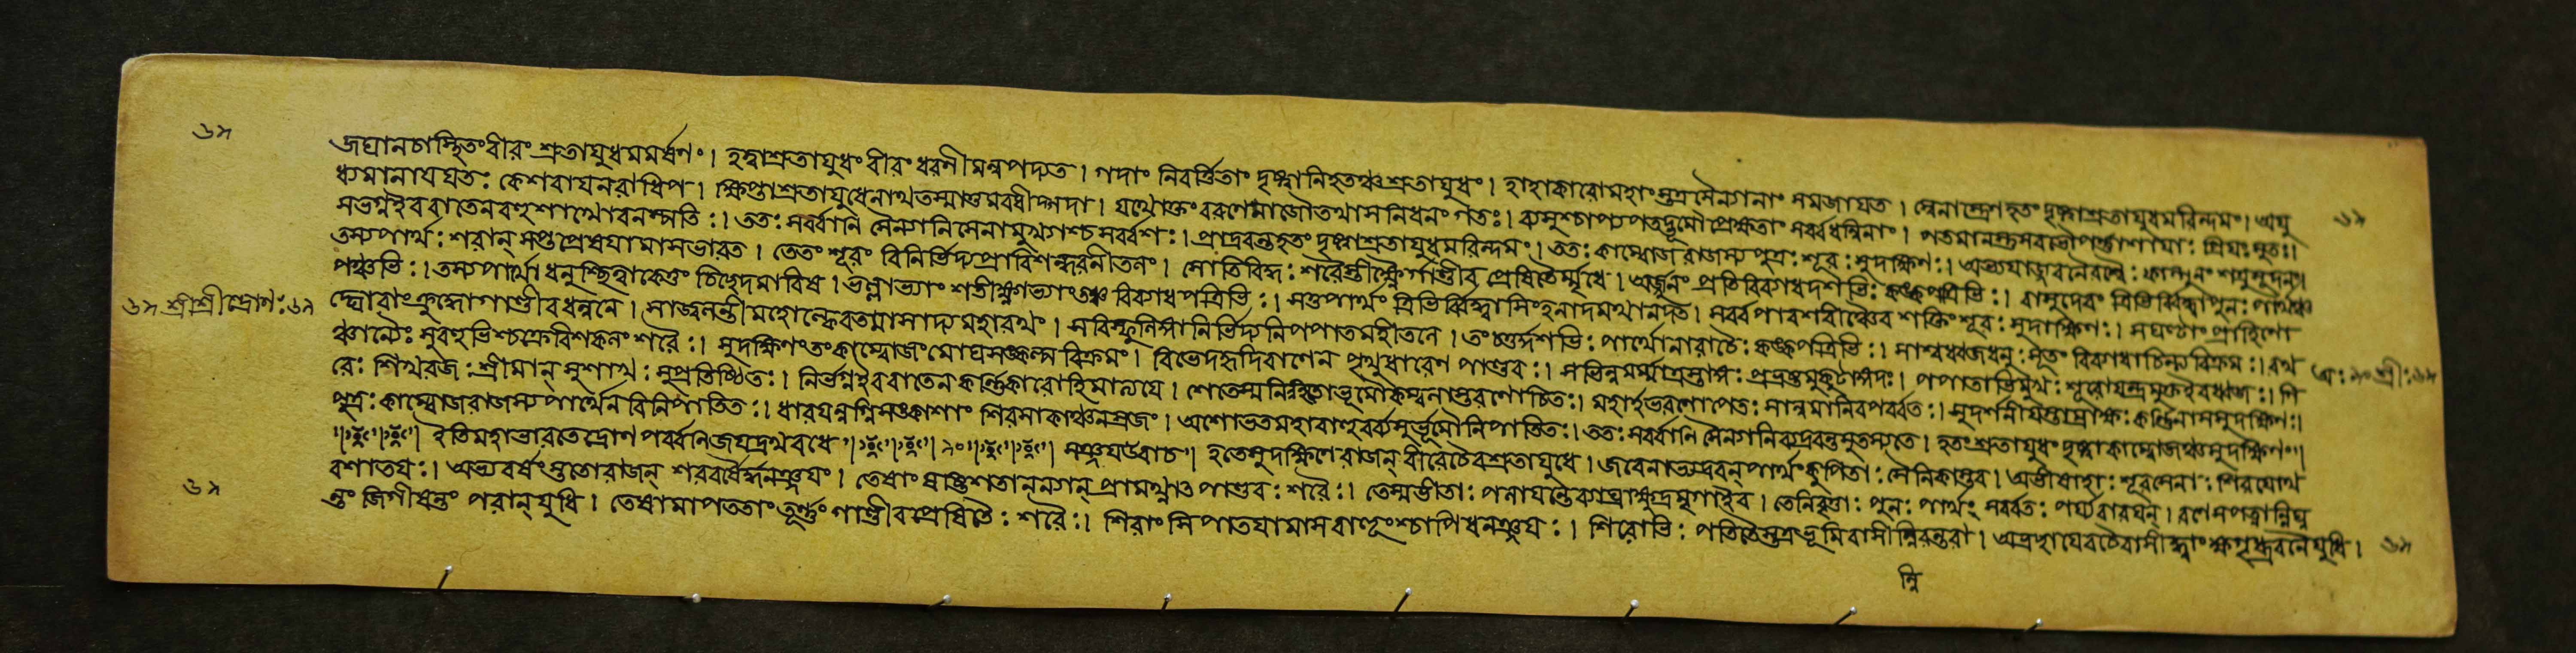 ৬৯
জঘানচাস্থিতংবীরং শ্রুতাযুধমমর্ষণং। হত্বাশ্রুতাযুধং বীরং ধরণীমন্বপদ্যত। গদাং নিবর্ত্তিতাং দৃষ্ট্বানিহতঞ্চশ্রুতাযুধং। হাহাকারোমহাংস্তত্রসৈন্যানাং সমজাযত। স্বেনাস্ত্রেণহতং দৃষ্ট্বাশ্রুতাযুধমরিন্দমং। অযু
ধ্যমানাযযতঃ কেশবাযনরাধিপ। ক্ষিপ্তাশ্রুতাযুধেনাথতস্মাত্তমবধীদ্গদা। যথোক্তং বরুণেনাজৌতথাসনিধনং গতঃ। ব্যসুশ্চাপ্যপতদ্ভূমৌপ্রেক্ষতাং সর্ব্বধন্বিনাং। পতমানস্তুসবভৌপর্ণাশাযাঃ প্রিযঃ সুতঃ।
সভগ্নইববাতেনবহুশাখোবনস্পতিঃ। ততঃ সর্ব্বানি সৈন্যানিসেনামুখ্যাশ্চসর্ব্বশঃ। প্রাদ্রবন্তহতং দৃষ্ট্বাশ্রুতাযুধমরিন্দমং। ততঃ কাম্বোজরাজস্যপুত্রঃ শূরঃ সুদক্ষিণঃ। অভ্যযাজ্জবনৈরশ্বৈঃ ফাল্গুনং শত্রুসূদনং।
তস্যপার্থঃ শরান্ সপ্তপ্রেষযামাসভারত। তেতং শূরং বিনির্ভিদ্যপ্রাবিশন্ধরনীতলং। সোতিবিদ্ধঃ শরৈস্তীক্ষ্ণৈর্গাণ্ডীব প্রেষিতৈর্ম্মৃধে। অর্জ্জুনং প্রতিবিব্যাধদশভিঃ কঙ্কপত্রিভিঃ। বাসুদেবং ত্রিভির্বিদ্ধ্বাপুনঃ পার্থঞ্চ
পঞ্চভিঃ। তস্যপার্থোধনুশ্ছিত্বাকেতুং চিচ্ছেদমারিষ। ভল্লাভ্যাং শতীক্ষ্ণাভ্যাংতঞ্চ বিব্যাধপাণ্ডবঃ। সতুপার্থং ত্রিভির্বিদ্ধ্বাসিংহনাদমথানদত। সর্ব্বপারশবীঞ্চৈব শক্তিংশূরঃ সুদক্ষিণঃ। সঘণ্টাং প্রাহিণো
৬৯ শ্রীশ্রীদ্রোণঃ৬৯
দ্ঘোরাংক্রুদ্ধোগাণ্ডীবধন্বনে। সাজ্বলন্তীমহোল্কেবতমাসাদ্যমহারথং। সবিস্ফুলিঙ্গানির্ভিদ্যনিপপাতমহীতলে। তংচতুর্দ্দশভিঃ পার্থোনারাচৈঃ কঙ্কপত্রিভিঃ। সাশ্বধ্বজধনুঃ সূতং বিব্যাধাচিন্ত্যবিক্রমঃ। রথ
ঞ্চান্যৈঃ সুবহুভিশ্চক্রেবিশকলং শরৈঃ। সুদক্ষিণংতংকাম্বোজংমোঘসঙ্কল্পবিক্রমং। বিভেদহৃদিবাণেন পৃথুধারেণ পাণ্ডবঃ। সভিন্নমর্ম্মাস্রস্তাঙ্গঃ প্রভ্রষ্টমুকুটাঙ্গদঃ। পপাতাভিমুখঃ শূরোযন্ত্রমুক্তইবধ্বজঃ। গি
রেঃ শিখরজঃ শ্রীমান্ সুশাখঃ সুপ্রতিষ্ঠিতঃ। নির্ভগ্নইববাতেন কর্ণিকারোহিমাত্যযে। শেতেস্মনিহতোভূমৌকম্বলাস্তরণোচিতঃ। মহার্হাভরণোপেতঃ সানুমানিবপর্ব্বতঃ। সুদর্শনীযস্তাম্রাক্ষঃ কর্ণিনাসসুদক্ষিণঃ।
পুত্রঃ কাম্বোজরাজস্যপার্থেনবিনিপাতিতঃ। ধারযন্নগ্নিসঙ্কাশাং শিরসাকাঞ্চনস্রজং। অশোভতমহাবাহুর্ব্যসুর্ভূমৌনিপাতিতঃ। ততঃ সর্ব্বানি সৈন্যানিব্যদ্রবন্তসুতস্যতে। হতংশ্রুতাযুধং দৃষ্ট্বাকাম্বোজঞ্চসুদক্ষিণং॥
ইতিমহাভারতেদ্রোণপর্ব্বনিজযদ্রথবধে ৯০ সঞ্জযউবাচ॥ হতেসুদক্ষিণেরাজন্ বীরেচৈবশ্রুতাযুধে। জবেনাভ্যদ্রবন্ পার্থংকুপিতাঃ সৈনিকাস্তব। অভীষাহাঃ শূরসেনাঃ শিবযোথ
বশাতযঃ। অভ্যবর্ষংস্ততোরাজন্ শরবর্ষৈর্দ্ধনঞ্জযং। তেষাং ষষ্টিশতানন্যান্ প্রামথ্নাৎ পাণ্ডবঃ শরৈঃ। তেস্মভীতাঃ পলাযন্তেব্যাঘ্রাৎক্ষুদ্রমৃগাইব। তেনিবৃত্তাঃ পুনঃ পার্থং সর্ব্বতঃ পর্য্যবারযন্। রণেসপত্নান্নিঘ্ন
৬৯
ন্তং জিগীষন্তং পরান্ যুধি। তেষামাপততাং তূর্ণং গাণ্ডীবপ্রেষিতৈঃ শরৈঃ। শিরাংসি পাতযামাসবাহূংশ্চাপিধনঞ্জযঃ। শিরোভিঃ পতিতৈস্তত্রভূমিরাসীন্নিরন্তরা। অভ্রচ্ছাযেবচৈবাসীদ্ধ্বাংক্ষগৃধ্রবলৈর্যুধি।
৬৯
ন্নি